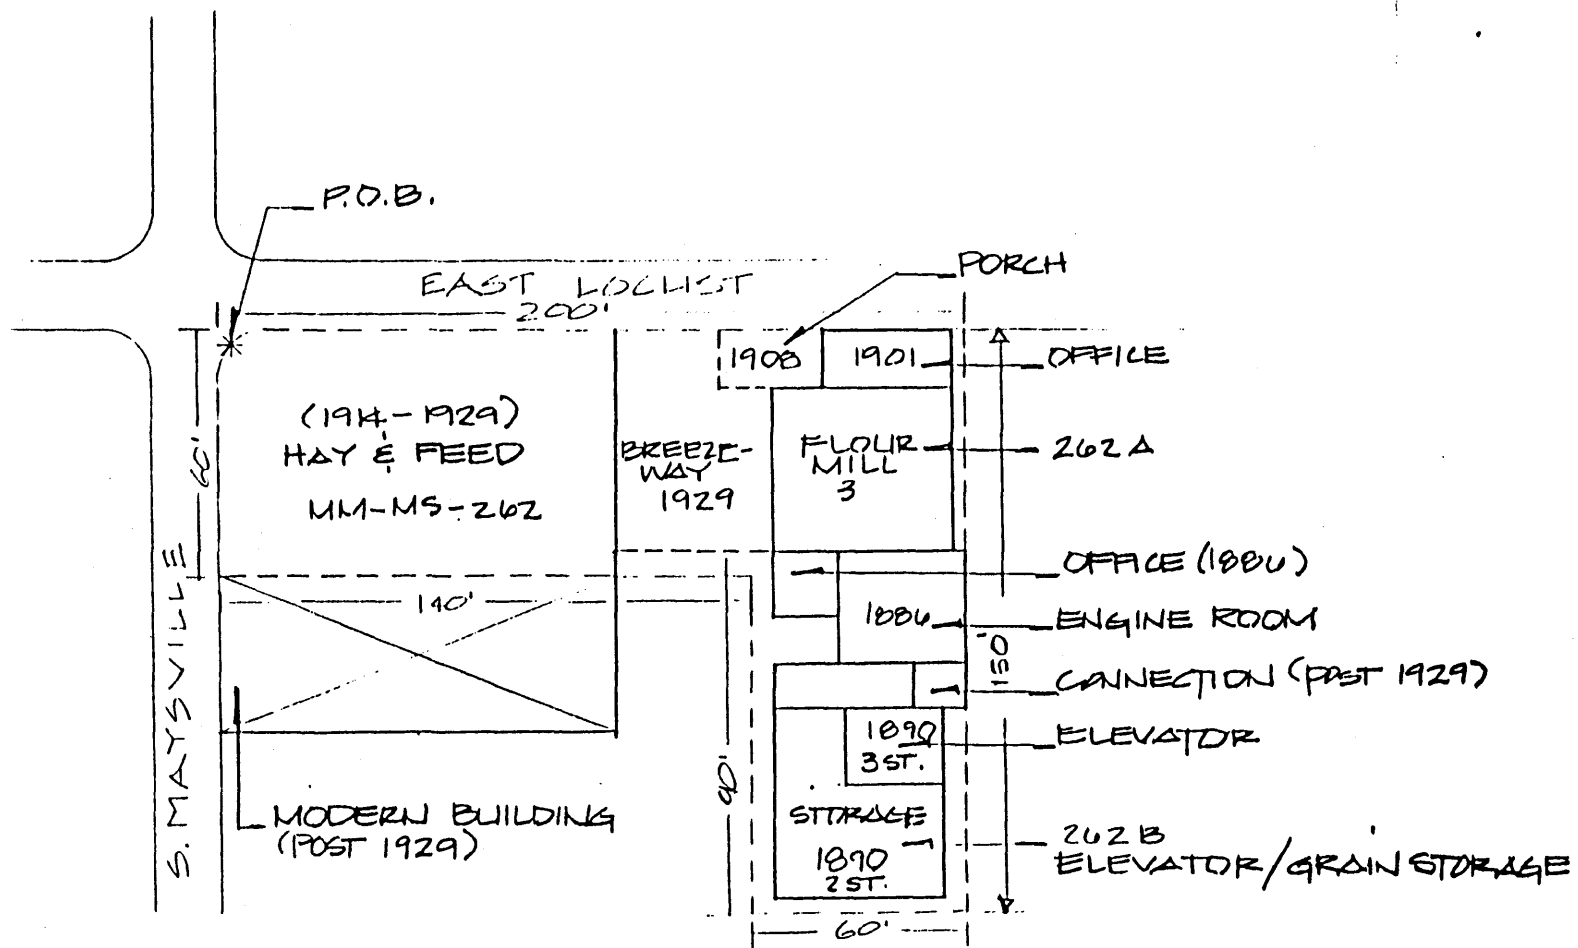 P.O.B.
PORCH
EAST LOCUST
200'
1908
1901
OFFICE
(1914-1929)
HAY & FEED
MM-MS-262
60'
BREEZE-
WAY
1929
FLOUR
MILL
3
262A
OFFICE (1886)
140'
1886
ENGINE ROOM
150'
CONNECTION (POST 1929)
1890
3 ST.
ELEVATOR
S. MAYSVILLE
90'
MODERN BUILDING
(POST 1929)
STORAGE
1890
2 ST.
262B
ELEVATOR/GRAIN STORAGE
60'